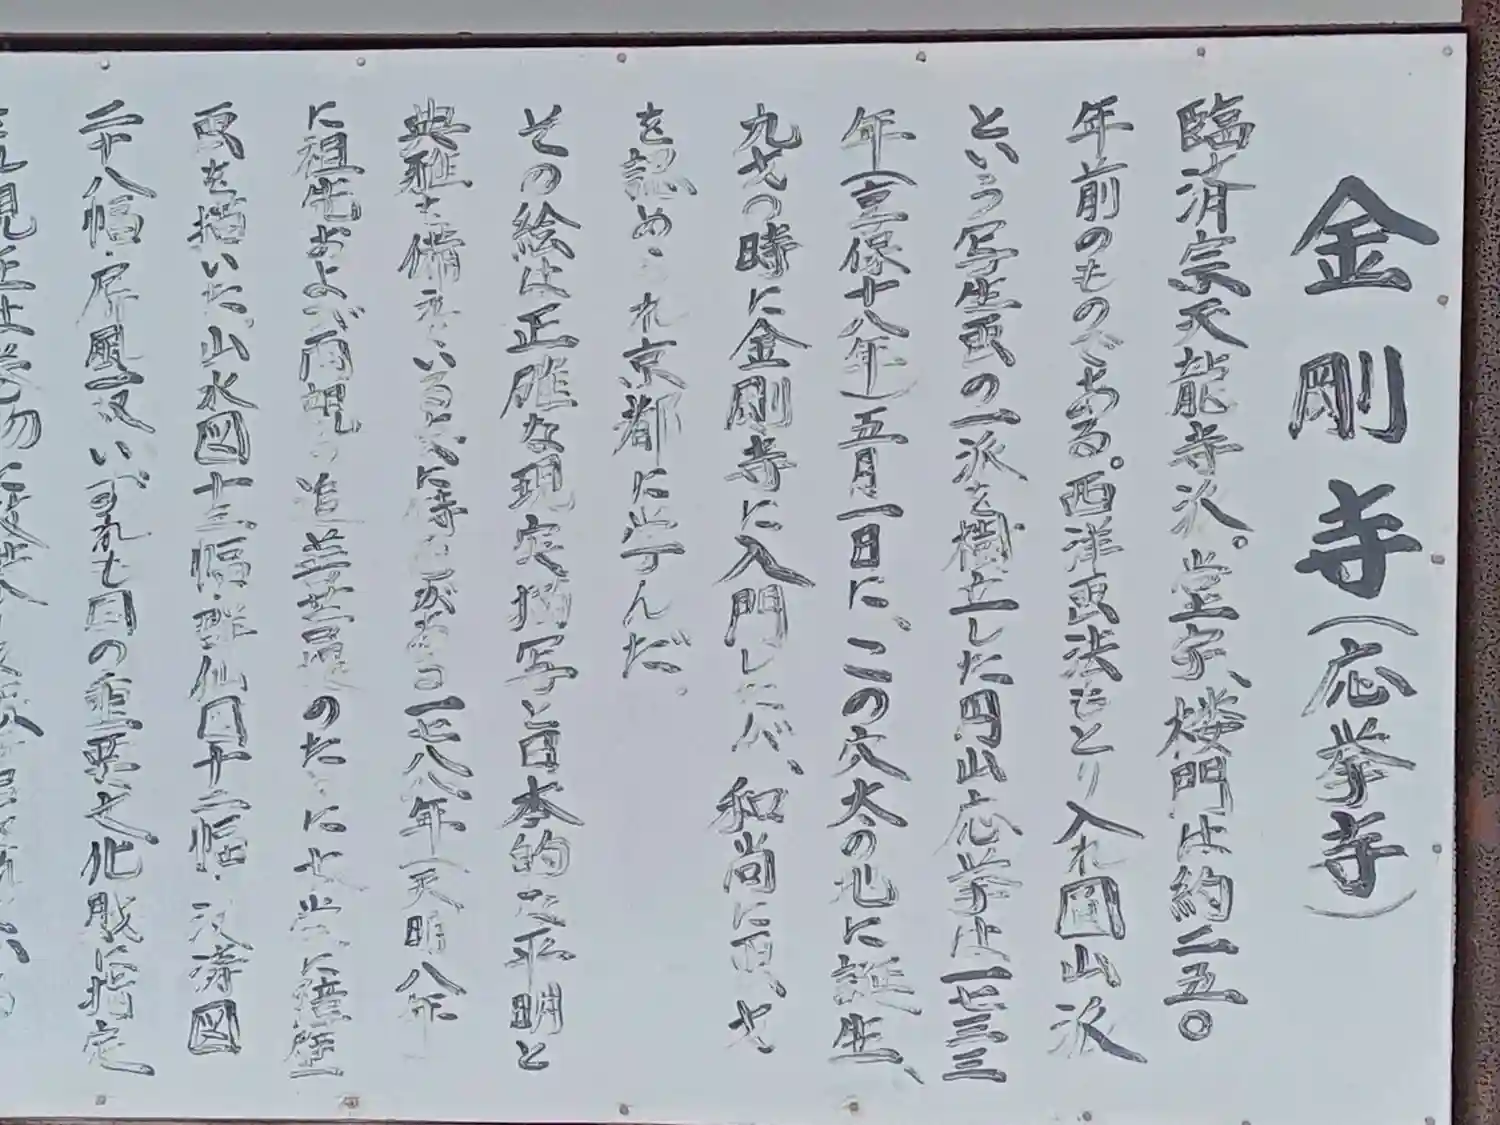 金剛寺(応挙寺)
臨済宗天龍寺派。堂宇、楼門は約二五〇
年前のものである。西洋画法もとり入れ圓山派
という写生画の一派を樹立した円山応挙は一七三三
年(享保十八年)五月一日に、この穴太の地に誕生、
九才の時に金剛寺に入門したが、和尚に画才
を認められ京都に学んだ。
その絵は正確な現実描写と日本的な平明と
典雅を備えているとくに寺
に祖先および両親の追善菩提のために七
画を描いた。山水図十三幅・群仙図十二幅・波濤図
二十八幅・屏風一双いずれも国の重要文化財に指定